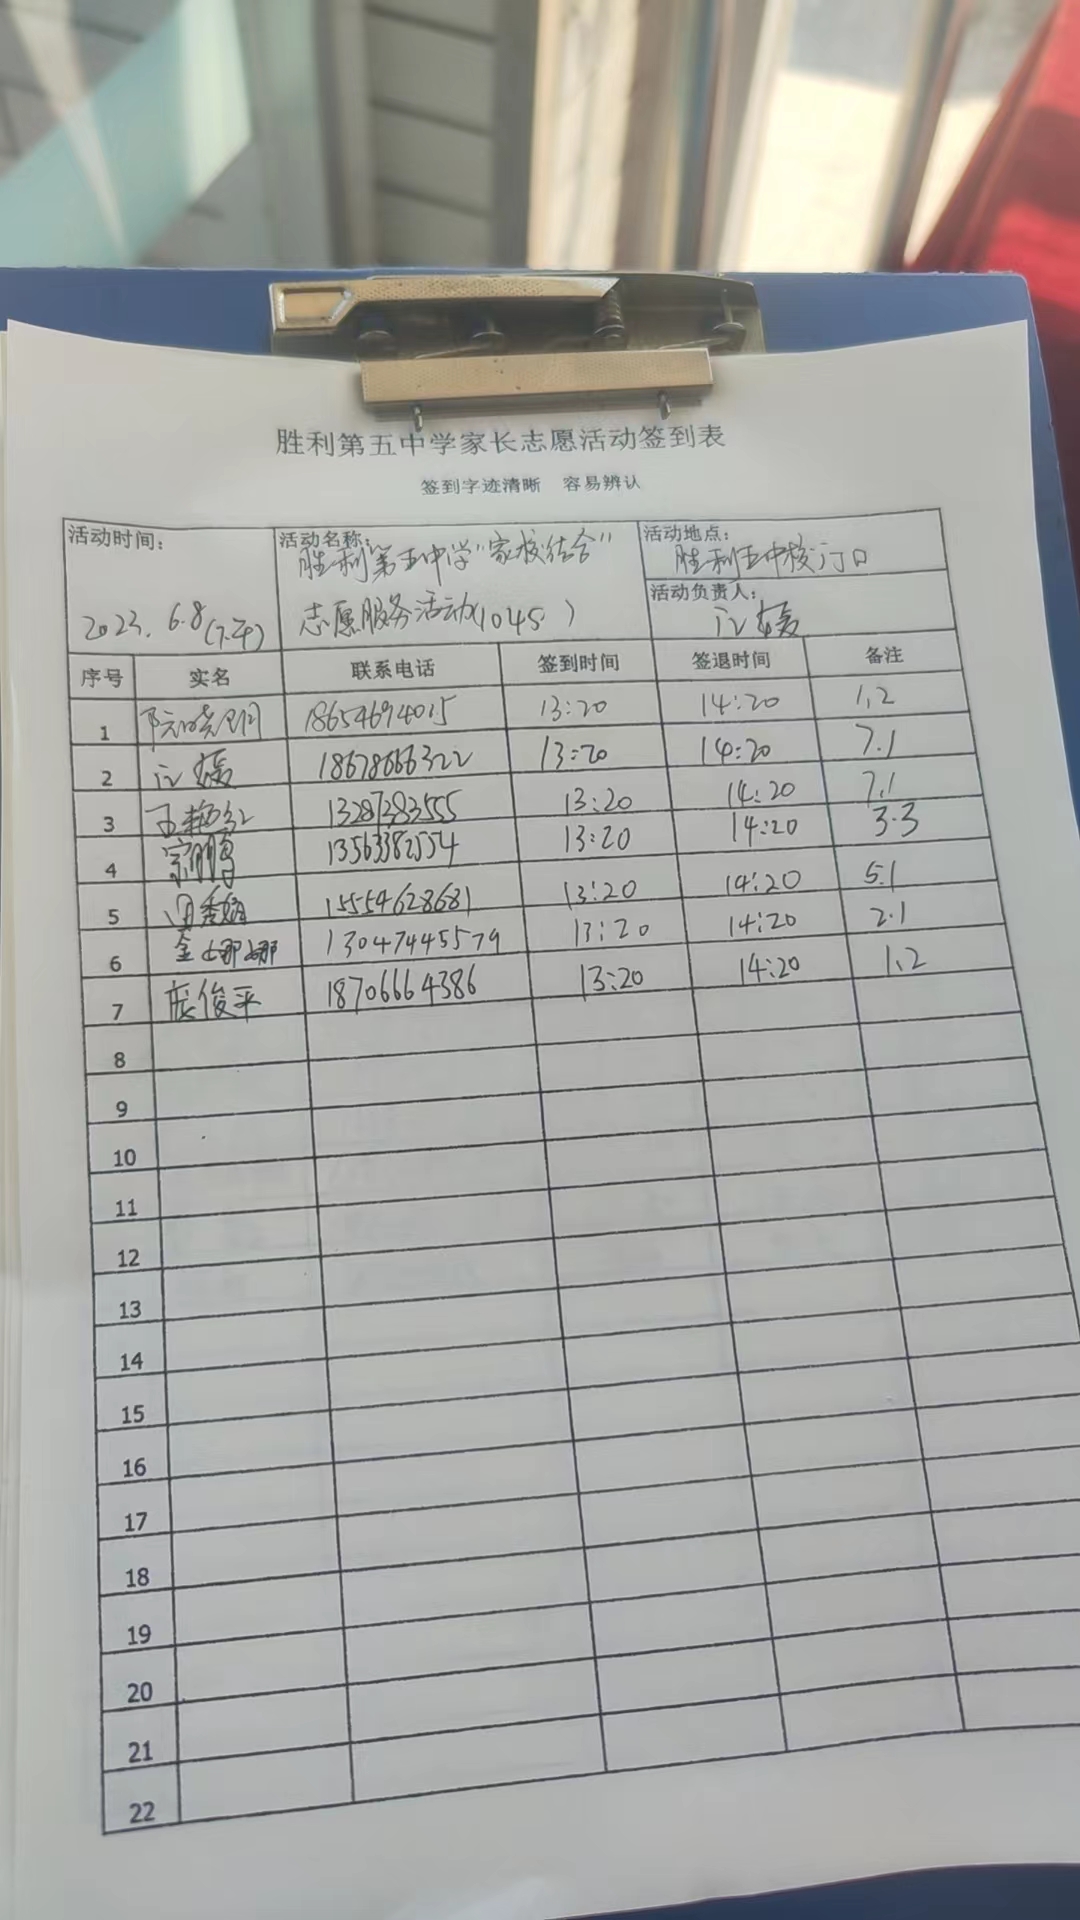 胜利第五中学家长志愿活动签到表
签到字迹清晰 容易辨认
活动时间：
2023. 6.8(下午)
活动名称：
胜利第五中学"家校结合"
志愿服务活动(1045)
活动地点：
胜利五中校门口
活动负责人：
媛
序号 实名 联系电话 签到时间 签退时间 备注
1 18654694015 13:20 14:20 1,2
2 媛 18678666322 13:20 14:20 7.1
3 王艳红 13287383555 13:20 14:20 7.1
4 宗鹏 13563382554 13:20 14:20 3.3
5 15554628681 13:20 14:20 5.1
6 金娜娜 13047445579 13:20 14:20 2.1
7 庞俊平 18706664386 13:20 14:20 1.2
8
9
10
11
12
13
14
15
16
17
18
19
20
21
22